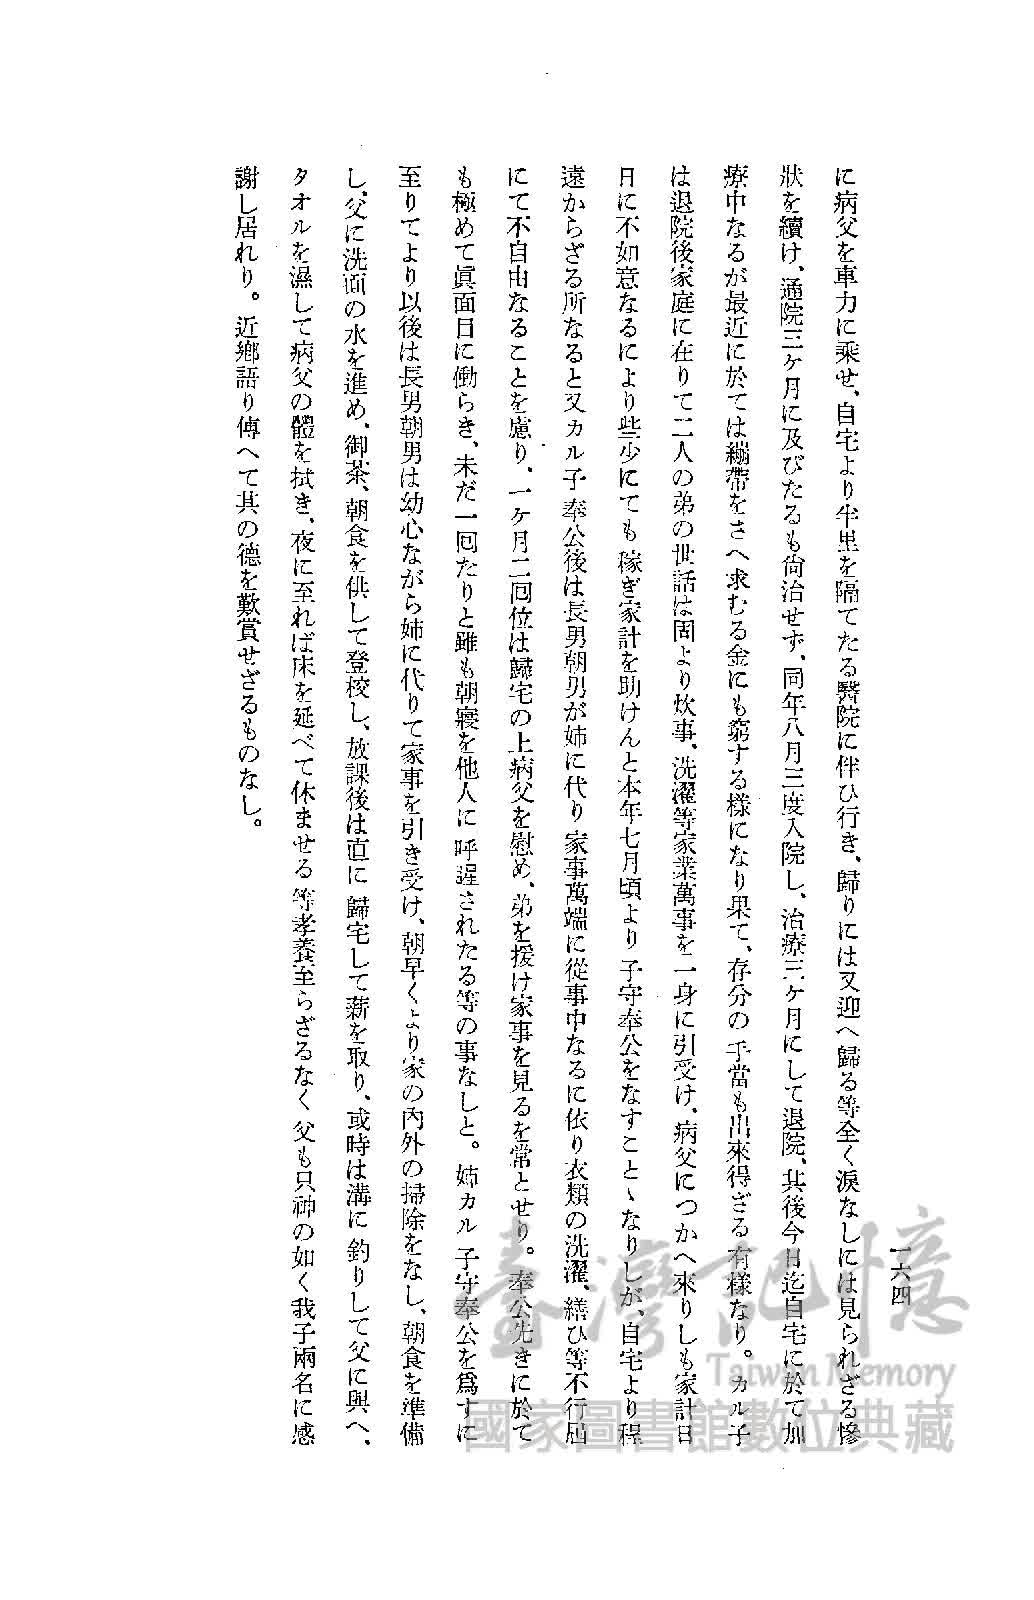 一六四
に病父を車力に乘せ、自宅より半里を隔てたる醫院に伴ひ行き、歸りには又迎へ歸る等全く淚なしには見られざる慘
狀を續け、通院三ケ月に及びたるも尙治せず、同年八月三度入院し、治療三ケ月にして退院、其後今日迄自宅に於て加
療中なるが最近に於ては繃帶をさへ求むる金にも窮する樣になり果て、存分の手當も出來得ざる有樣なり。カル子
は退院後家庭に在りて二人の弟の世話は固より炊事、洗濯等家業萬事を一身に引受け、病父につかへ來りしも家計日
日に不如意なるにより些少にても稼ぎ家計を助けんと本年七月頃より子守奉公をなすことゝなりしが、自宅より程
遠からざる所なると又カル子奉公後は長男朝男が姉に代り家事萬端に從事中なるに依り衣類の洗濯、繕ひ等不行屆
にて不自由なることを慮り、一ケ月二回位は歸宅の上病父を慰め、弟を援け家事を見るを常とせり。奉公先きに於て
も極めて眞面目に働らき、未だ一回たりと雖も朝寢を他人に呼遲されたる等の事なしと。姉カル子守奉公を爲すに
至りてより以後は長男朝男は幼心ながら姉に代りて家事を引き受け、朝早くより家の內外の掃除をなし、朝食を準備
し、父に洗面の水を進め、御茶、朝食を供して登校し、放課後は直に歸宅して薪を取り、或時は溝に釣りして父に與へ、
タオルを濕して病父の體を拭き、夜に至れば床を延べて休ませる等孝養至らざるなく父も只神の如く我子兩名に感
謝し居れり。近鄕語り傳へて其の德を歎賞せざるものなし。
臺灣記憶
Taiwan Memory
國家圖書館數位典藏